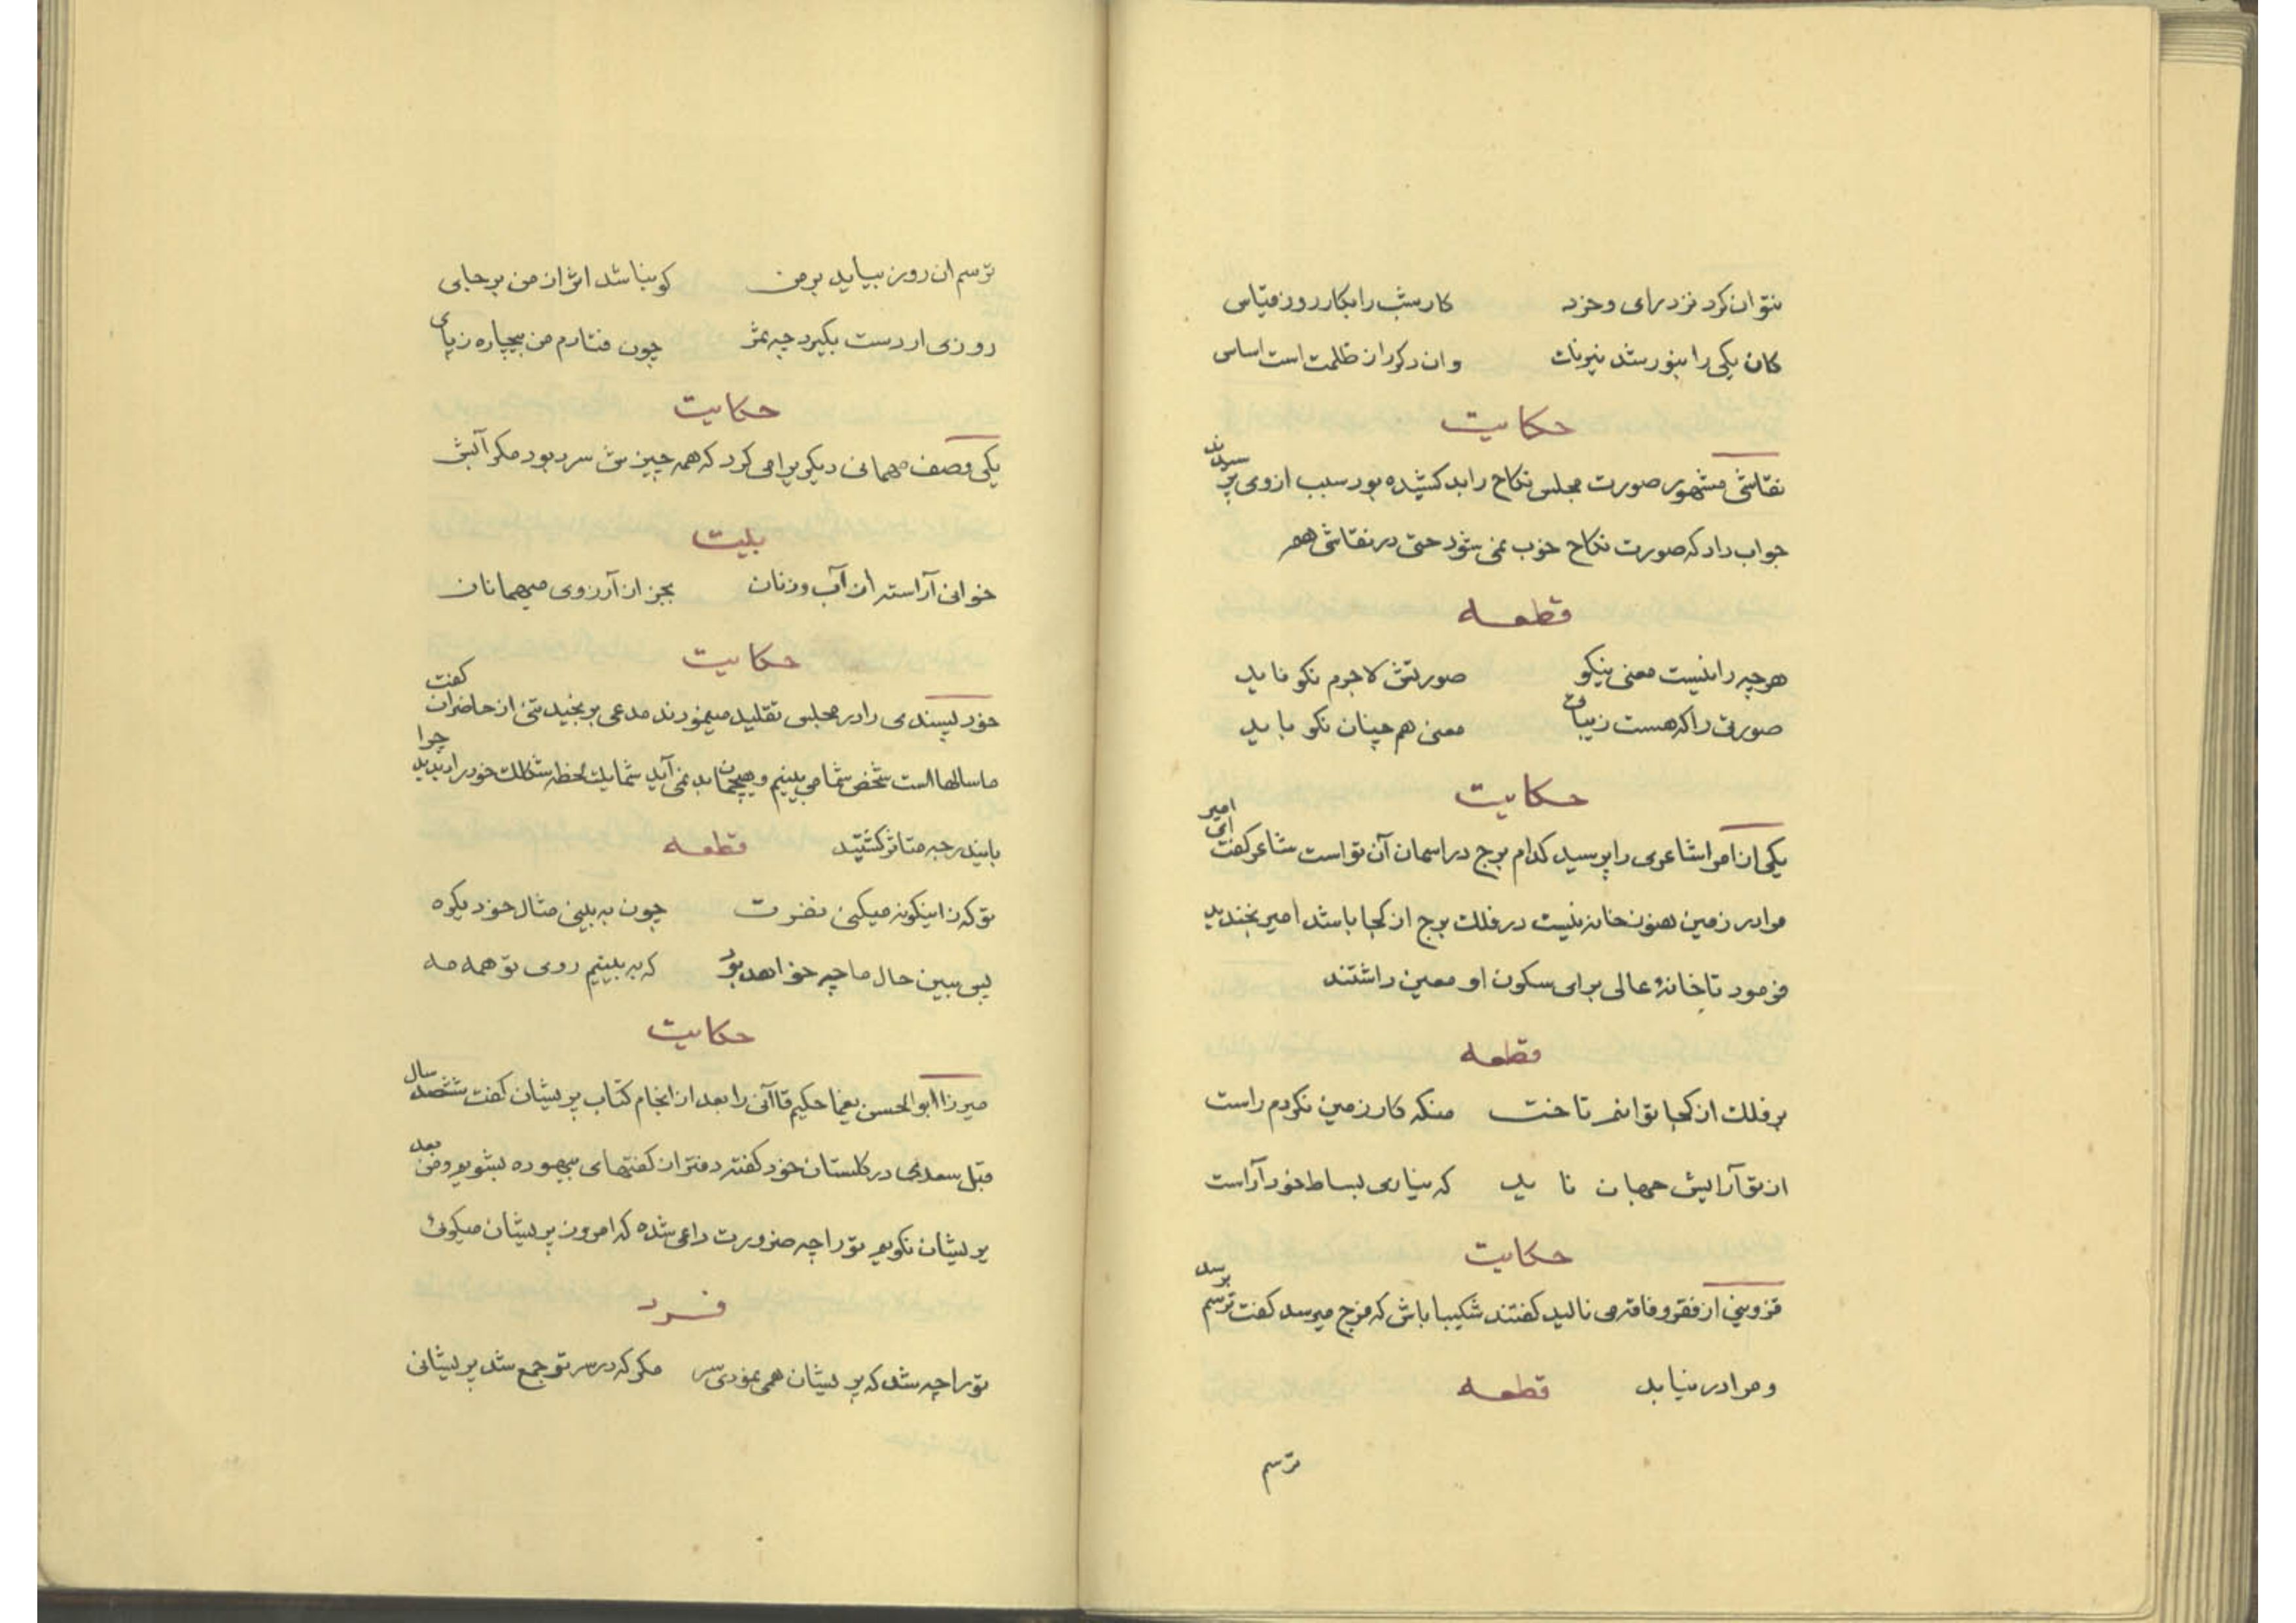 نتوان کرد نزد رای و خرد کار شب را بکار روز قیاس
کان یکی را بنور شد نیرنات وان دکر را ز ظلمت است اساس
حکایت
نقاشی مشهور صورت مجلس نکاح را بد کشیده بود سبب از وی پرسیدند
جواب داد که صورت نکاح خوب نمی شود حتی در نقاشی هم
قطعه
هرچه را نیست معنی نیکو صورتش لاجرم نکو ناید
صورتی را که هست زیبائی معنی هم چنان نکو باید
حکایت
یکی از امرا شاعری را پرسید کدام برج در اسمان آن تو است شاعر کفت ای امیر
مرا در زمین هنوز خانه نیست در فلک برج از کجا باشد امیر بخندید
فرمود تا خانهٔ عالی برای سکون او معین داشتند
قطعه
بر فلک از کجا توانم تاخت منکه کار زمین نکردم راست
از تو آرایش جهان ناید که نیاری بساط خود آراست
حکایت
قزوینی از فقر و فاقه می نالید کفتند شکیبا باش که فرج میرسد کفت ترسم برسد
و مرا در نیابد قطعه
ترسم
ترسم ان روز بیاید بر من کو بنا شد اثر از من بر جای
روزی ار دست بکیرد چه ثمر چون فتادم من بیچاره ز پای
حکایت
یکی وصف مهمانی دیکر برا می کرد که همه چیزش سرد بود مکر آبش
بیت
خوانی آراسته از آب و ز نان بجز از آرزوی میهمانان
حکایت
خود پسندی را در مجلس تقلید مینمودند مدعی برنجید تنی از حاضران کفت
ما سالها است شخص شما می بینیم و هیچمان بد نمی آید شما یک لحظه شکلک خود را دیدید چرا
بایندرجه متاثر کشتید قطعه
تو که زاینکونه میکنی نفرت چون به بینی مثال خود یکره
پس ببین حال ما چه خواهد بود که به بینیم روی تو همه مه
حکایت
میرزا ابوالحسن یغما حکیم قاآنی را بعد از انجام کتاب پریشان کفت ششصد سال
قبل سعدی در کلستان خود کفته دفتر از کفتهای بیهوده بشویم و من بعد
پریشان نکویم تو را چه ضرورت داعی شده که امروز پریشان میکوئی
فرد
تو را چه شد که پریشان همی نمودی سر مکر که در سر تو جمع شد پریشانی